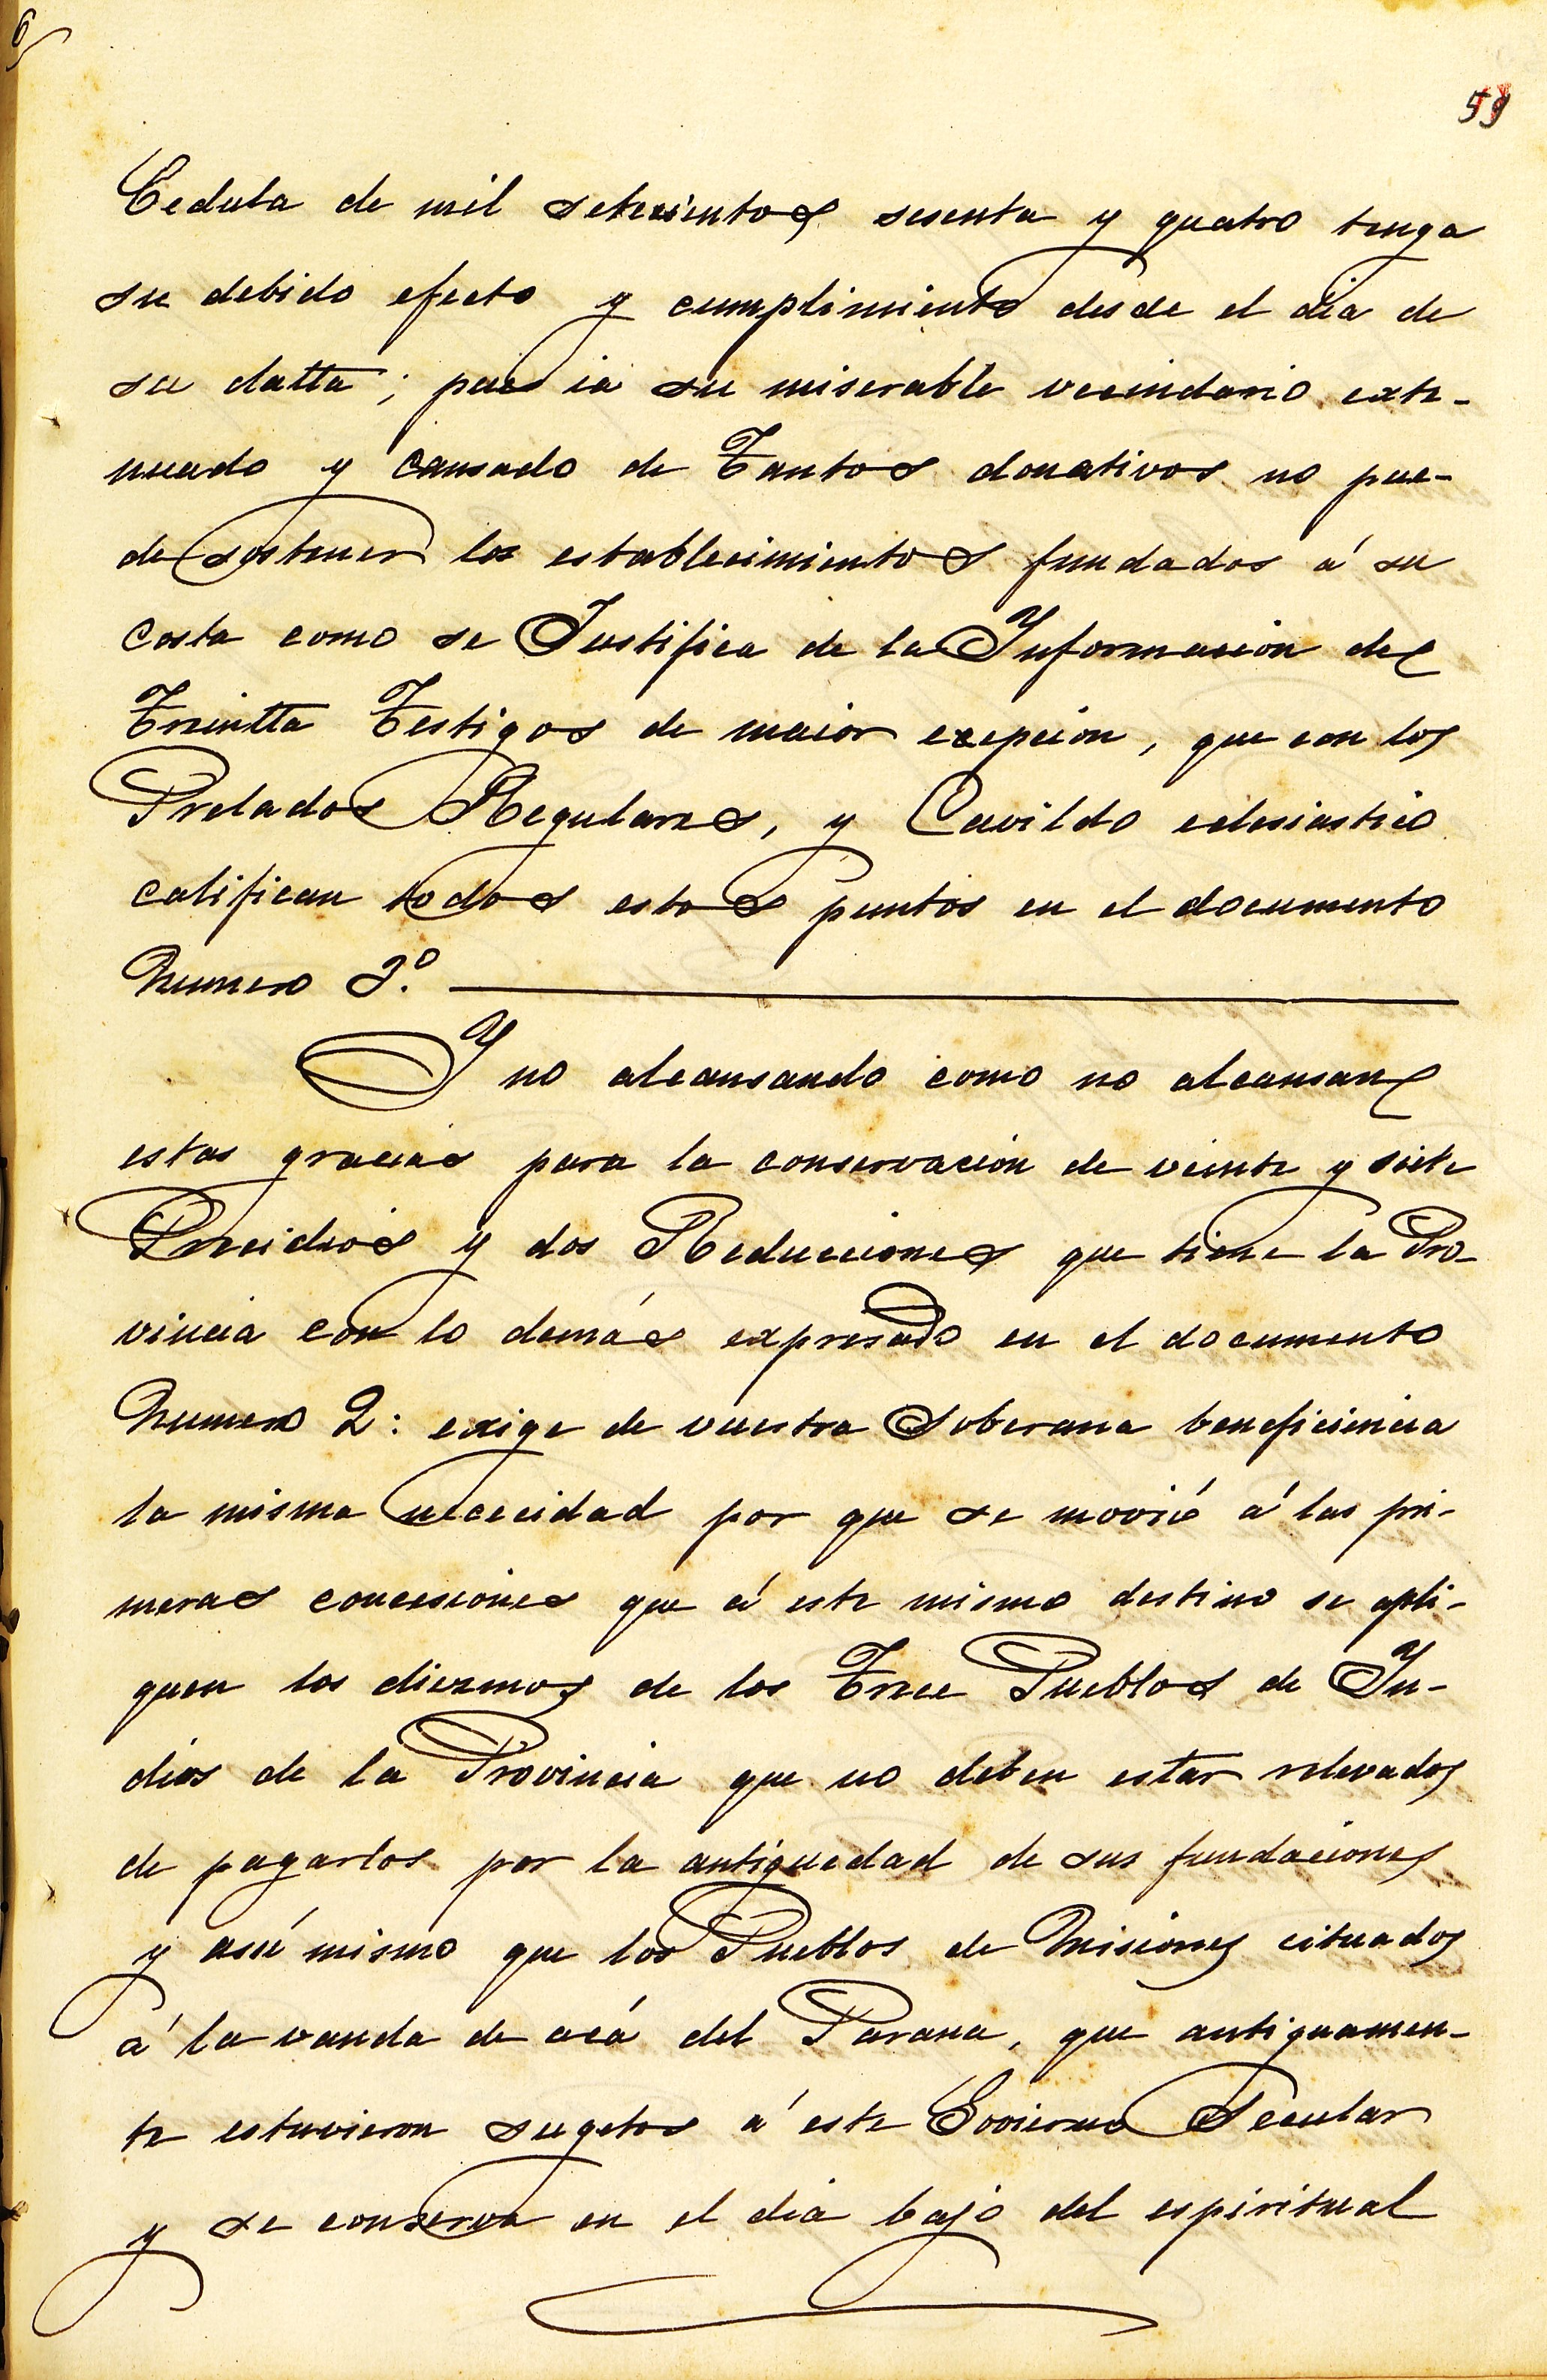 6
59
Cedula de mil setecientos sesenta y quatro tenga
su debido efecto y cumplimiento desde el dia de
su datta; pues ia su miserable vecindario exte-
nuado y cansado de Tantos donativos no pue-
de sostener los establecimientos fundados á su
costa como se Justifica de la Informacion de
Treintta Testigos de maior exepcion, que con los
Prelados Regulares, y Cavildo eclesiastico
califican todos estos puntos en el documento
Numero 3.º
Y no alcansando como no alcansan
estas gracias para la conservacion de veinte y siete
Precidios y dos Reducciones que tiene la Pro-
vincia con lo demás expresado en el documento
Numero 2: exige de vuestra Soberana beneficiencia
la misma nececidad por que se movió á las pri-
meras concesiones que á este mismo destino se apli-
quen los diezmos de los Trece Pueblos de In-
dios de la Provincia que no deben estar relevados
de pagarlos por la antiguedad de sus fundaciones
y asi mismo que los Pueblos de Misiones cituados
á la vanda de acá del Parana, que antiguamen-
te estuvieron sugetos á este Govierno Secular
y se conserva en el dia bajo del espiritual